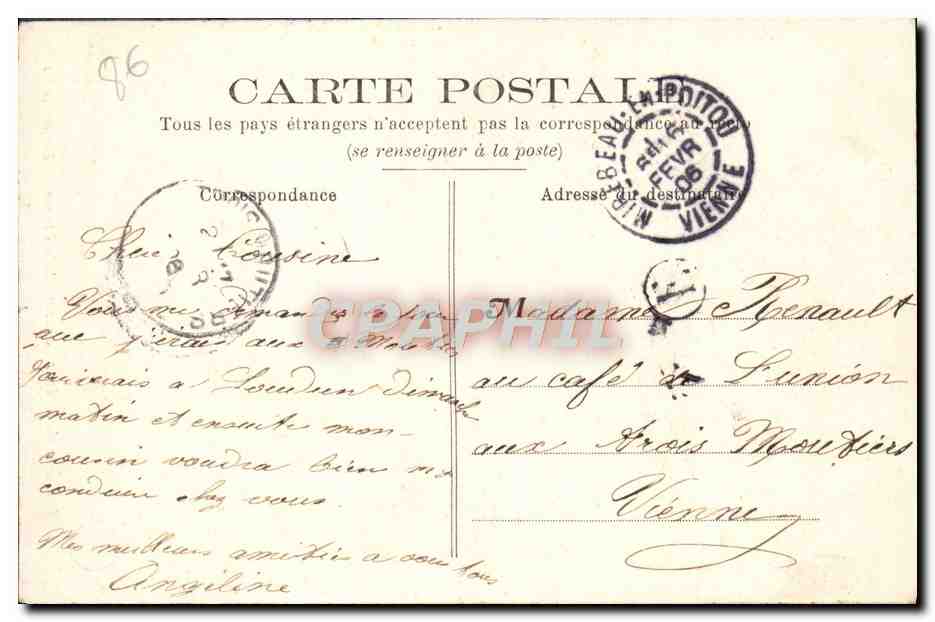 86
CARTE POSTALE
Tous les pays étrangers n'acceptent pas la correspondance au recto
(se renseigner à la poste)
MIREBEAU-EN-POITOU
FEVR
06
VIENNE
Correspondance
Adresse du destinataire
Cousine
CPAPHIL
Madame Renault
au café de L'union
aux trois Moutiers
Vienne
Vous me
que j'irais aux
a Loudun dimanche
matin et ensuite mon
cousin voudra bien me
conduire chez vous
Mes meilleurs amitiés a vous tous
Angiline